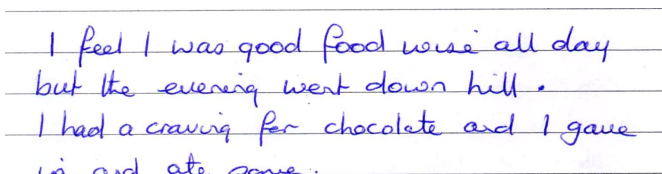 I feel I was good food wise all day
but the evening went down hill.
I had a craving for chocolate and I gave
in and ate some.